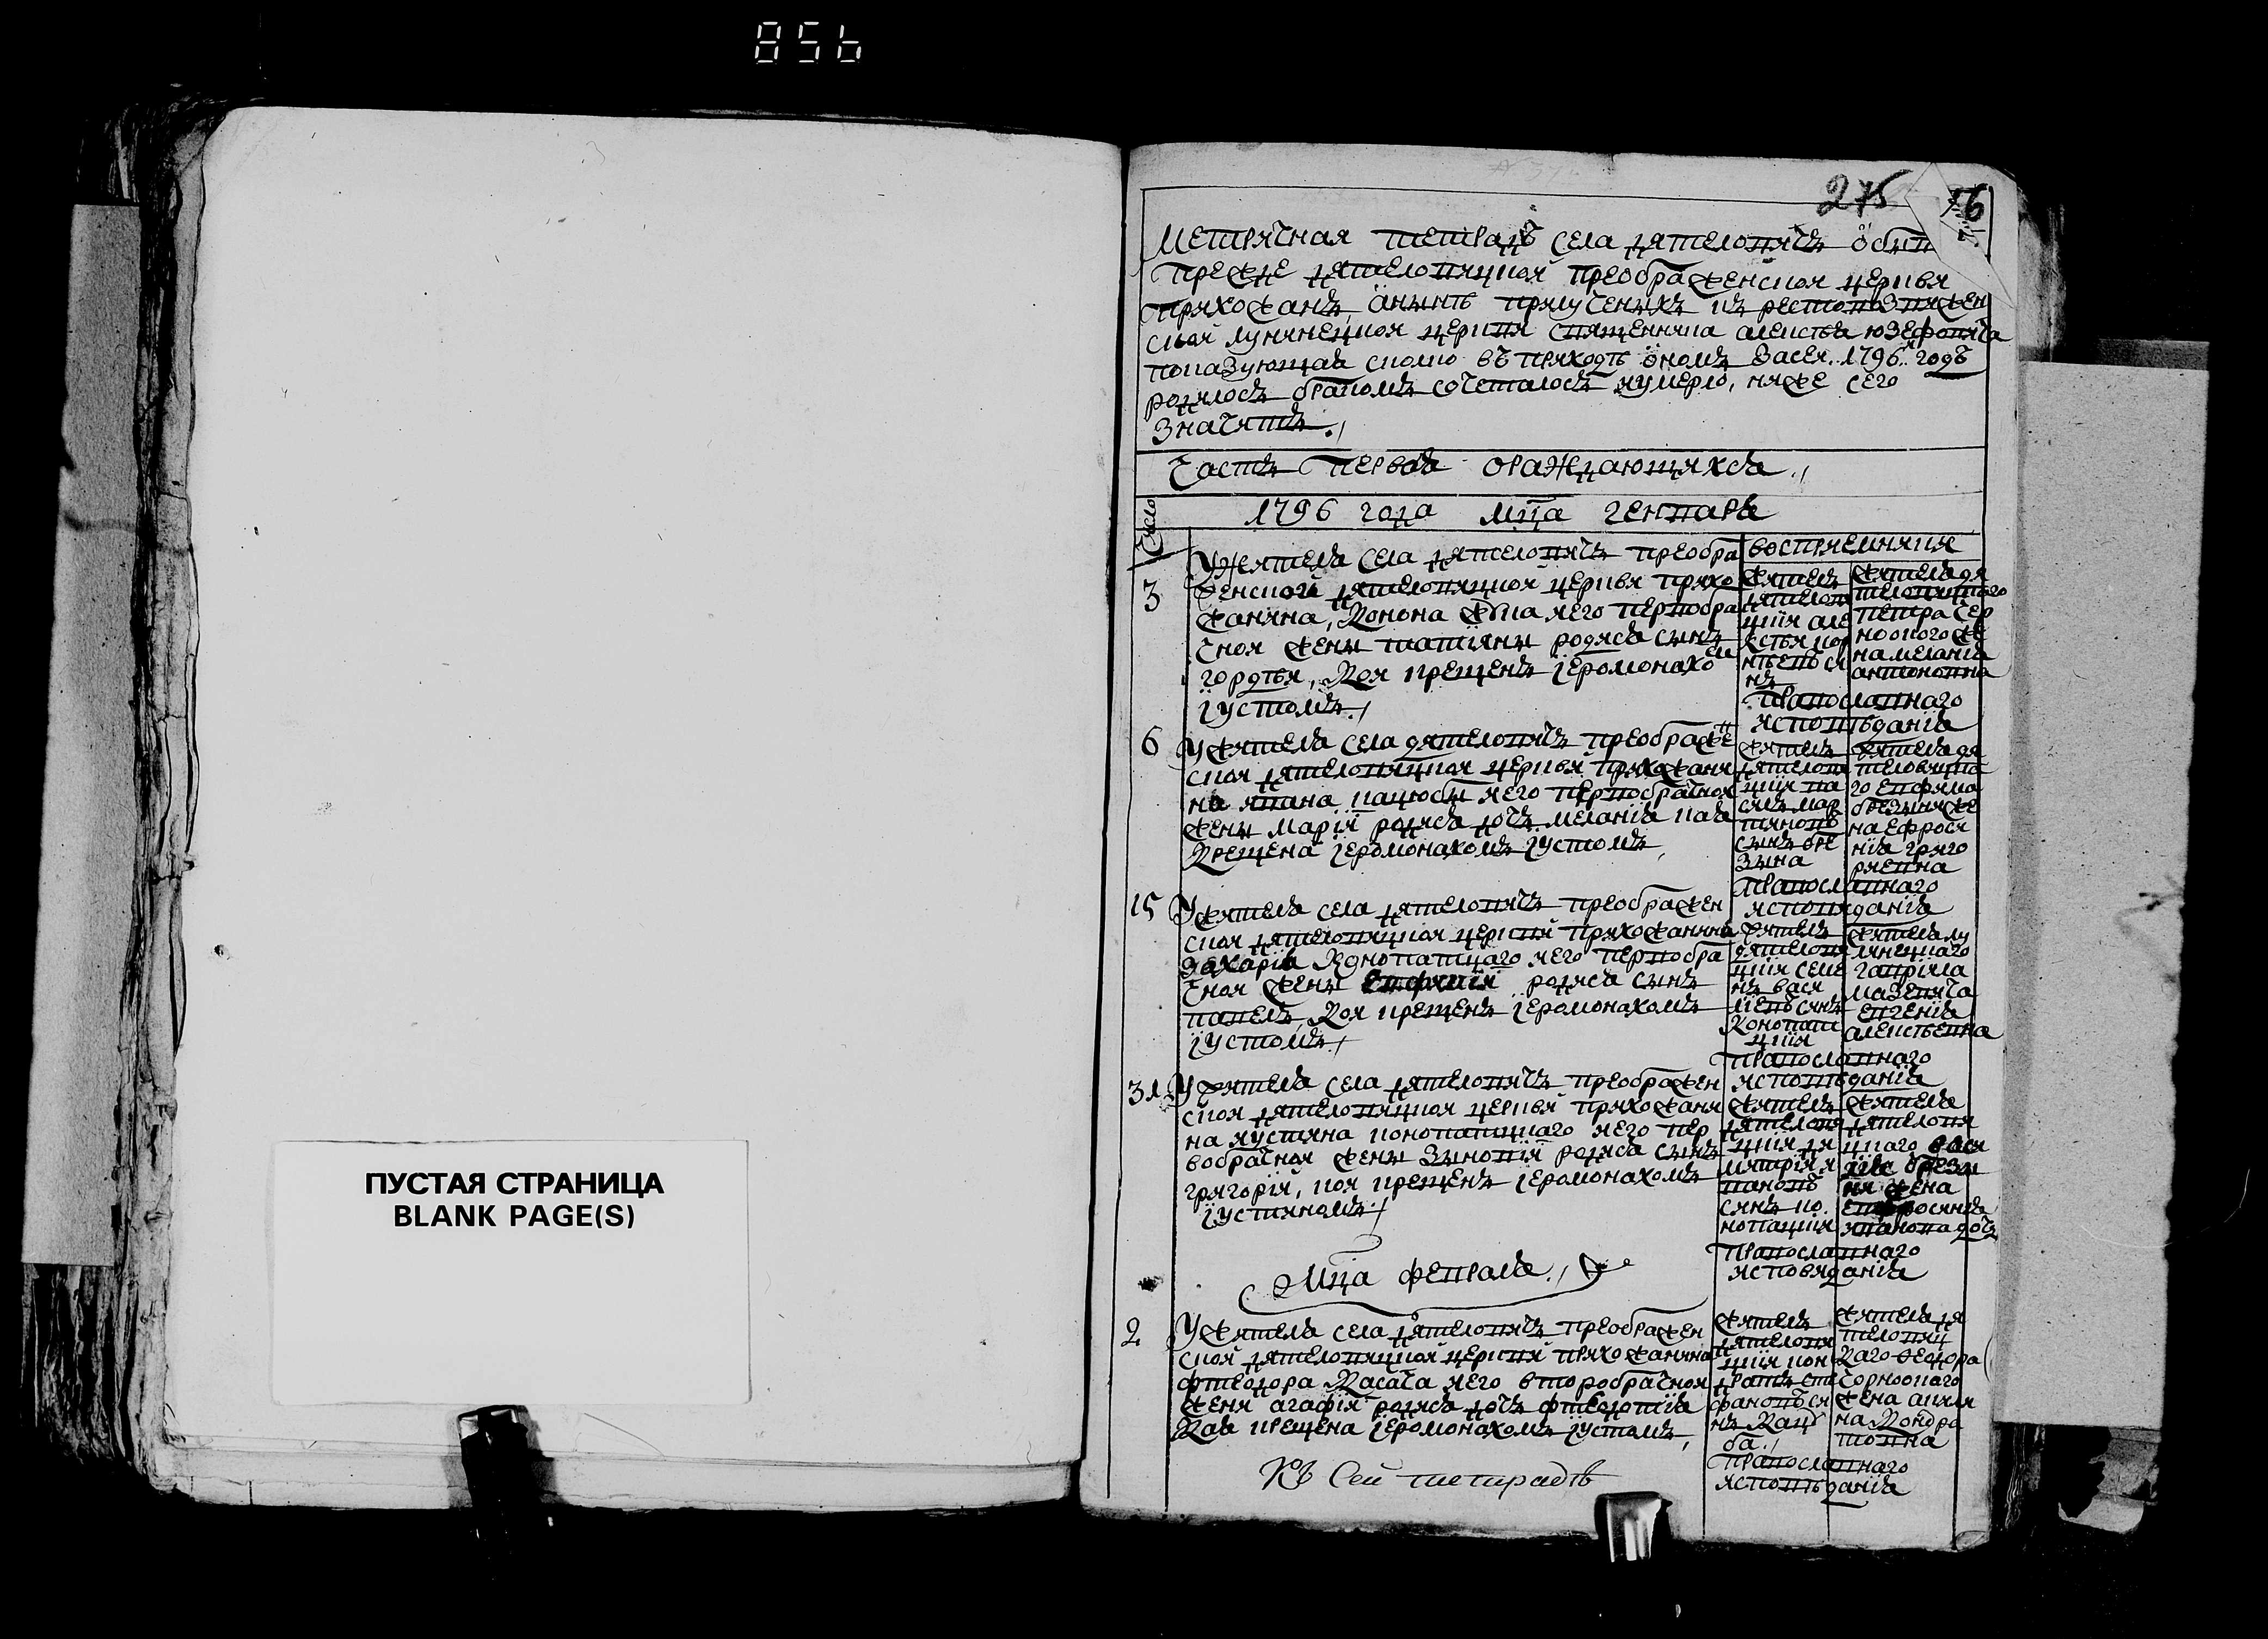 856
ПУСТАЯ СТРАНИЦА
BLANK PAGE(S)
275
76
Метричная тетрадь села дятеловичъ
прежде дятеловицкой преображенской церкви
прихожанъ, анынѣ прилученыхъ къ
ской лунинецкой церкви священника алексѣя юзефовича
показующая сколко въ приходѣ ономъ засей 1796й годъ
родилось бракомъ сочеталось иумерло, ниже сего
значитъ
Часть Первая ораждающихся
Число
1796 года мца генваря
воспрiемники
3
Ужителя села дятеловичъ преобра
женской дятеловицкой церкви прихо
жанина, Конона его первобра
чной жены татiяны родися сынъ
гордѣй, Кой крещенъ iеромонахомъ
iустомъ
житель дятелов цкiй
жителя дя теловицкого петра Чер ноокого же на меланiя антоновна
православнаго
исповѣданiя
6
Ужителя села дятеловичъ преображен
ской дятеловицкой церквй прихожани
на ивана кацюбы иего первобрачной
жены марiй родися дочь меланiя кая
Крещена iеромонахомъ iустомъ
житель дятелов цкiй
жителя дя теловицка го
же на ефроси нiя григо риевна
православнаго
исповиданiя
15
Ужителя села дятеловичъ преображен
ской дятеловицкой церквй прихожанина
Захарiя Конопацкаго иего первобра
чной жены родися сынъ
павелъ, Кой крещенъ iеромонахомъ
iустомъ
житель дятелови цкiй семе нъ васи лiевъ сынъ Конопат цкiй
жителя лу нинецкаго гаврiила мазепича евгенiя алексѣевна
православнаго
исповѣданiя
31
Ужителя села дятеловичъ преображен
ской дятеловицкой церквй прихожани
на иустина конопацкаго иего пер
вобрачной жены зиновiй родися сынъ
григорiй, кой крещенъ iеромонахомъ
iустиномъ
житель дятелови цкiй ди митрiй и вановъ сынъ ко нопацкiй
жителя дятелови цкаго васи лiя
жена
ивановна дочь
православнаго
исповиданiя
Мца февраля
2
Ужителя села дятеловичъ преображен
ской дятеловицкой церквй прихожанина
фтеодора Касача иего второбрачной
жени агафiй родися дочь фтеодотiя
Кая крещена iеромонахомъ iустомъ
житель дятелови цкiй кон дратъ сте фановъ сы нъ Кацю ба
жителя дя теловиц каго феодора Чорноокаго жена акили на Кондра товна
православнаго
исповѣданiя
Къ Сей тетрадѣ